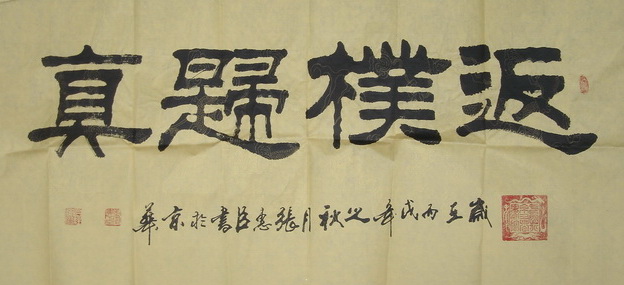 返樸歸真
歲在丙戌年之秋月張惠臣書於京華